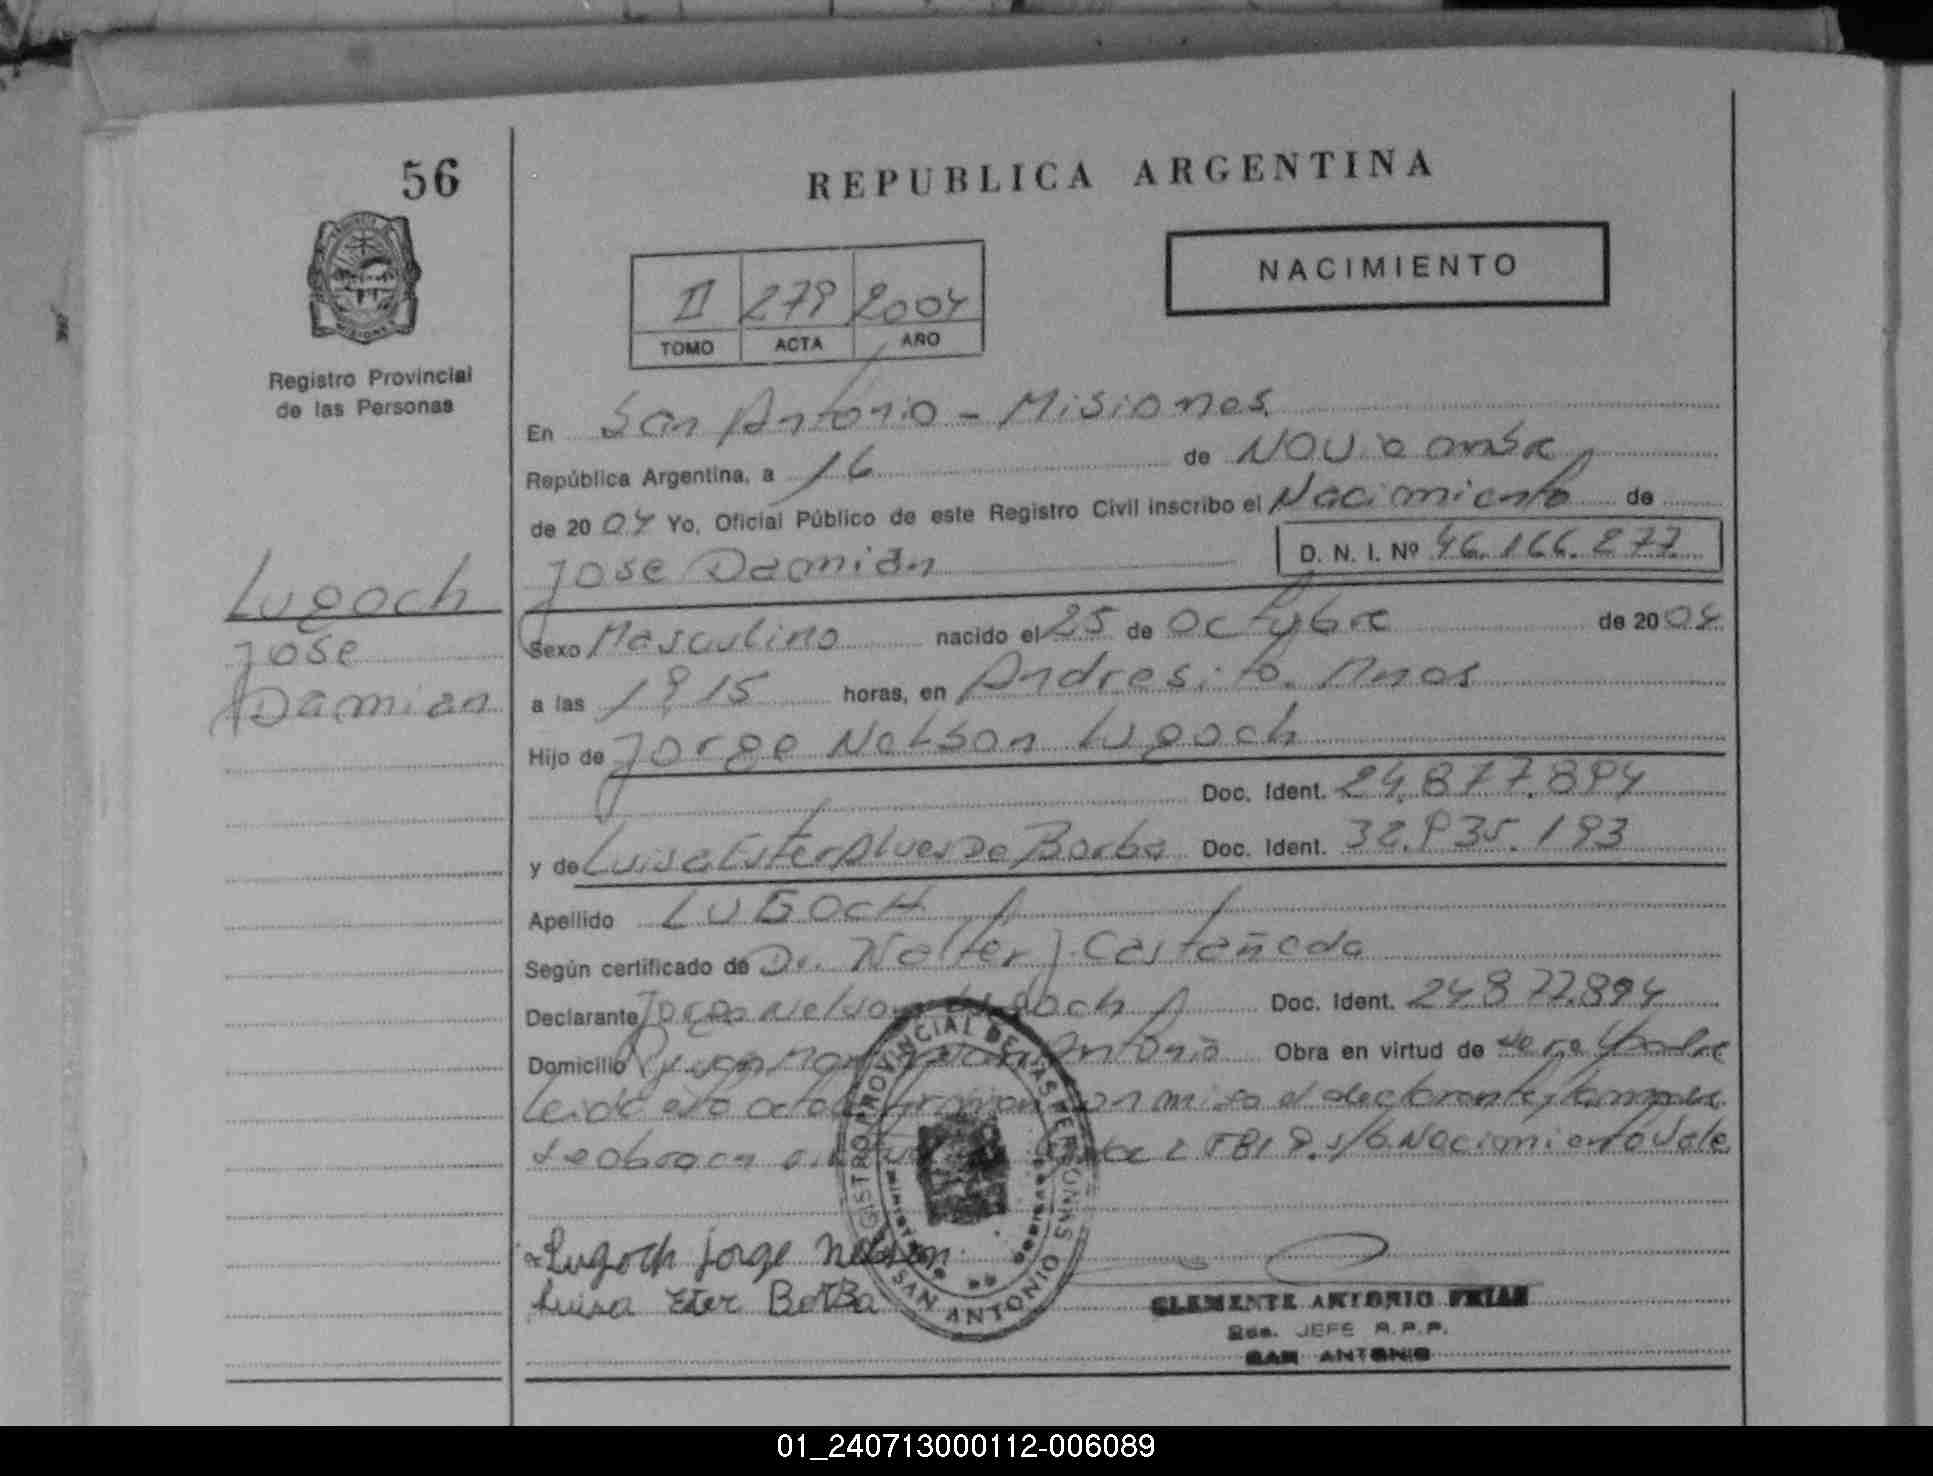 56
REPUBLICA ARGENTINA
NACIMIENTO
II 279 2004
TOMO ACTA AÑO
Registro Provincial
de las Personas
En San Antonio - Misiones
República Argentina, a 16 de
de 2004 Yo, Oficial Público de este Registro Civil inscribo el Nacimiento de
Jose Damián D. N. I. Nº 46.166.277
Lugoch
Jose
Damian
Sexo Masculino nacido el 25 de Octubre de 2004
a las 19,15 horas, en Andresito. Mnes
Hijo de Jorge Nelson Lugoch
Doc. Ident. 24.877.894
y de Luisa Ester Alves De Borba Doc. Ident. 32.935.193
Apellido LUGOCH
Según certificado de Dr. Walter J. Castañeda
Declarante Jorge Nelson Lugoch Doc. Ident. 24877894
Domicilio San Antonio Obra en virtud de
Leida el declarante
Nacimiento Vale
Lugoch Jorge Nelson
Luisa Ester Borba
REGISTRO PROVINCIAL DE LAS PERSONAS
SAN ANTONIO
CLEMENTE ANTONIO FRIAS
JEFE R.P.P.
SAN ANTONIO
01_240713000112-006089